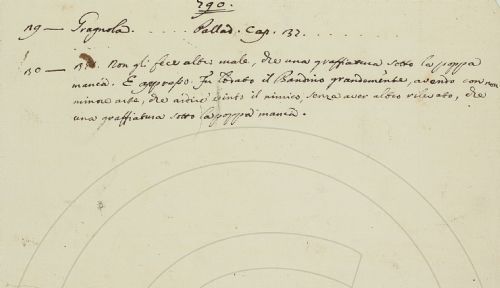 790.
129 — Gragnola. . . . . . . Pallad. Cap. 137. . . . .
130 — Non gli fece altro male, che una graffiatura sotto la poppa
manca. E appresso. Fu lodato il Bandino grandemente, avendo con non
minore arte, che ardire vinto il nimico, senza aver altro rilevato, che
una graffiatura sotto la poppa manca.